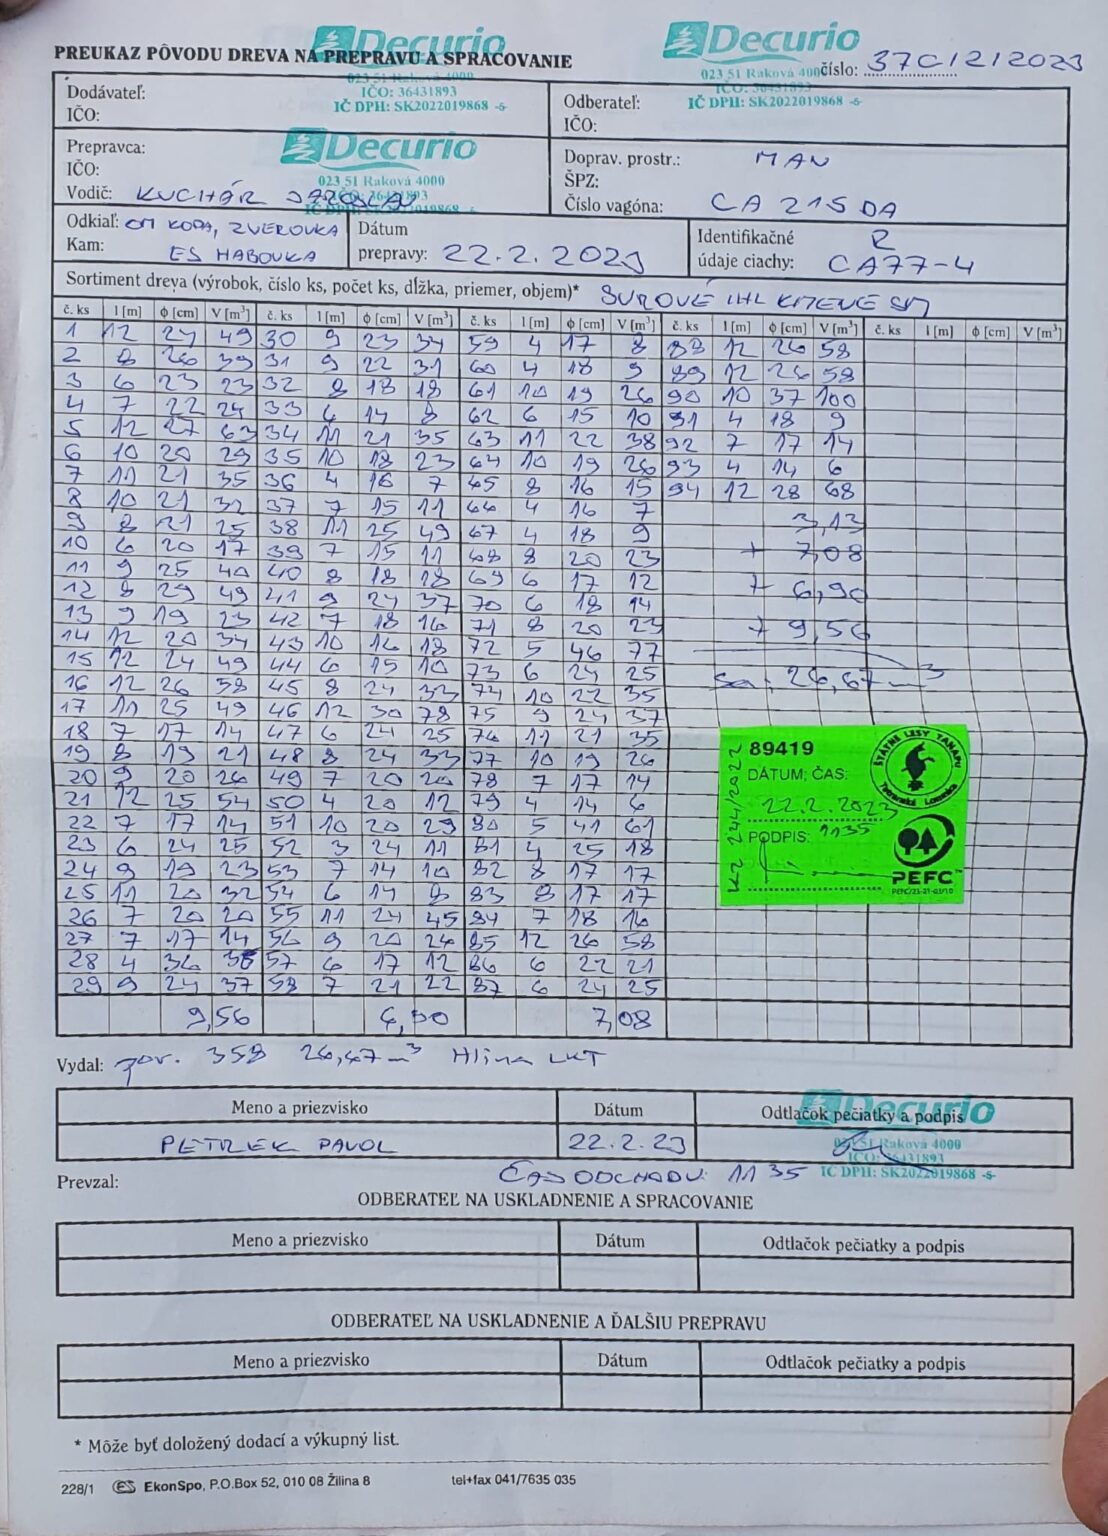 PREUKAZ PÔVODU DREVA NA PREPRAVU A SPRACOVANIE
Decurio
023 51 Raková 4000
IČO: 36431893
IČ DPH: SK2022019868 -5-
Decurio
023 51 Raková 400
IČO: 36431893
IČ DPH: SK2022019868 -5-
číslo: 370/2/2023
Dodávateľ:
IČO:
Odberateľ:
IČO:
Prepravca:
IČO:
Vodič: KUCHÁR
Decurio
023 51 Raková 4000
Doprav. prostr.: MAN
ŠPZ:
Číslo vagóna: CA 215 DA
Odkiaľ: OM KOPA, ZVEROVKA
Kam: ES HABOVKA
Dátum
prepravy: 22.2.2023
Identifikačné R
údaje ciachy: CA77-4
Sortiment dreva (výrobok, číslo ks, počet ks, dĺžka, priemer, objem)* SUROVÉ IHL KMENE SM
č. ks l [m] ϕ [cm] V [m³] č. ks l [m] ϕ [cm] V [m³] č. ks l [m] ϕ [cm] V [m³] č. ks l [m] ϕ [cm] V [m³] č. ks l [m] ϕ [cm] V [m³]
1 12 24 49 30 9 23 34 59 4 17 8 88 12 26 58
2 8 26 39 31 9 22 31 60 4 18 9 89 12 26 58
3 6 23 23 32 8 18 18 61 10 19 26 90 10 37 100
4 7 22 24 33 6 14 8 62 6 15 10 91 4 18 9
5 12 27 63 34 11 21 35 63 11 22 38 92 7 17 14
6 10 20 29 35 10 18 23 64 10 19 26 93 4 14 6
7 11 21 35 36 4 16 7 65 8 16 15 94 12 28 68
8 10 21 32 37 7 15 11 66 4 16 7 3,13
9 8 21 25 38 11 25 49 67 4 18 9
10 6 20 17 39 7 15 11 68 8 20 23 + 7,08
11 9 25 40 40 8 18 18 69 6 17 12
12 8 29 49 41 9 24 37 70 6 18 14 + 6,90
13 9 19 23 42 7 18 16 71 8 20 23
14 12 20 34 43 10 16 18 72 5 46 77 + 9,56
15 12 24 49 44 6 15 10 73 6 24 25
16 12 26 58 45 8 24 33 74 10 22 35 Sa: 26,67 m³
17 11 25 49 46 12 30 78 75 9 24 37
18 7 17 14 47 6 24 25 76 11 21 35
19 8 19 21 48 8 24 33 77 10 19 26
20 9 20 26 49 7 20 20 78 7 17 14
21 12 25 54 50 4 20 12 79 4 14 6
22 7 17 14 51 10 20 29 80 5 41 61
23 6 24 25 52 3 24 11 81 4 25 18
24 9 19 23 53 7 14 10 82 8 17 17
25 11 20 32 54 6 14 8 83 8 17 17
26 7 20 20 55 11 24 45 84 7 18 16
27 7 17 14 56 9 20 26 85 12 26 58
28 4 36 38 57 6 17 12 86 6 22 21
29 9 24 37 58 7 21 22 87 6 24 25
9,56 6,90 7,08
89419
DÁTUM; ČAS:
22.2.2023
PODPIS: 1135
KZ 244/2022
ŠTÁTNE LESY TANAPU
Tatranská Lomnica
PEFC™
Vydal: por. 358 26,67 m³ Hlina LKT
Meno a priezvisko Dátum Odtlačok pečiatky a podpis
PETREK PAVOL 22.2.23
Decurio
023 51 Raková 4000
IČO: 36431893
IČ DPH: SK2022019868 -5-
Prevzal: ČAS ODCHODU: 11 35
ODBERATEĽ NA USKLADNENIE A SPRACOVANIE
Meno a priezvisko Dátum Odtlačok pečiatky a podpis
ODBERATEĽ NA USKLADNENIE A ĎALŠIU PREPRAVU
Meno a priezvisko Dátum Odtlačok pečiatky a podpis
* Môže byť doložený dodací a výkupný list.
228/1 ES EkonSpo, P.O.Box 52, 010 08 Žilina 8 tel+fax 041/7635 035